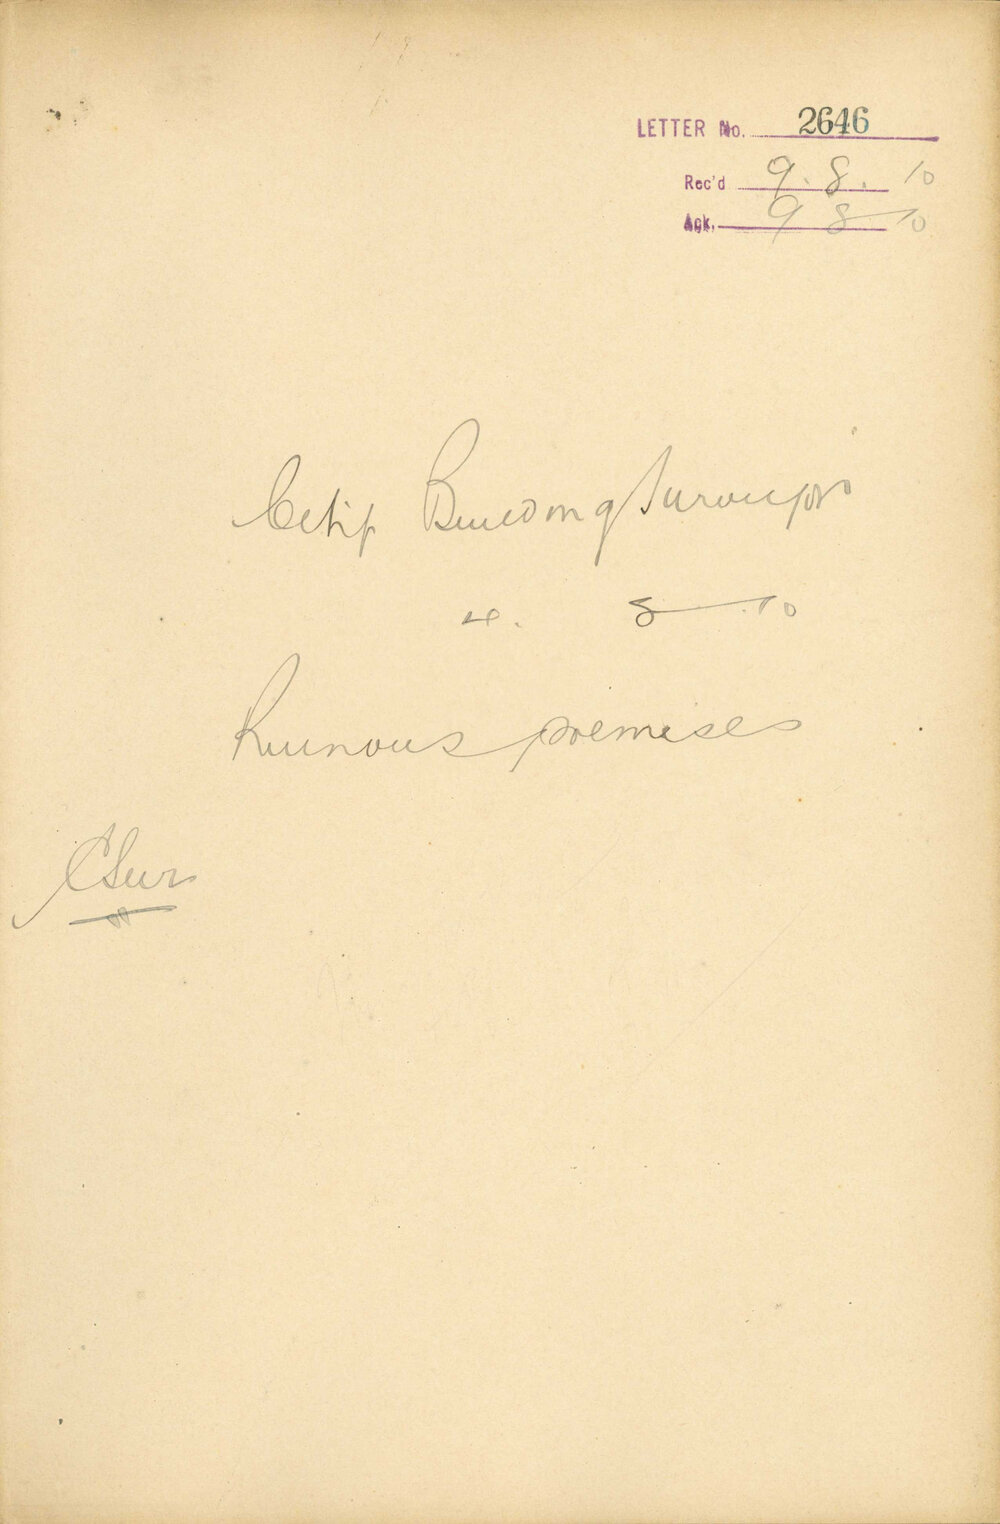 LETTER No. 2646
Rec'd 9.8.10
Ack. 9 8 10
City Building Surveyor
4. 8 10
Ruinous premises
C Sur